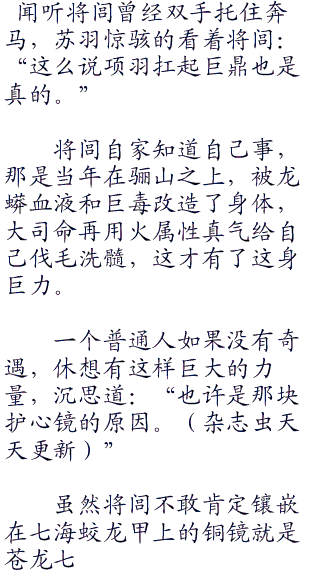 闻听将闾曾经双手托住奔
马，苏羽惊骇的看着将闾：
“这么说项羽扛起巨鼎也是
真的。”
将闾自家知道自己事，
那是当年在骊山之上，被龙
蟒血液和巨毒改造了身体，
大司命再用火属性真气给自
己伐毛洗髓，这才有了这身
巨力。
一个普通人如果没有奇
遇，休想有这样巨大的力
量，沉思道：“也许是那块
护心镜的原因。（杂志虫天
天更新）”
虽然将闾不敢肯定镶嵌
在七海蛟龙甲上的铜镜就是
苍龙七